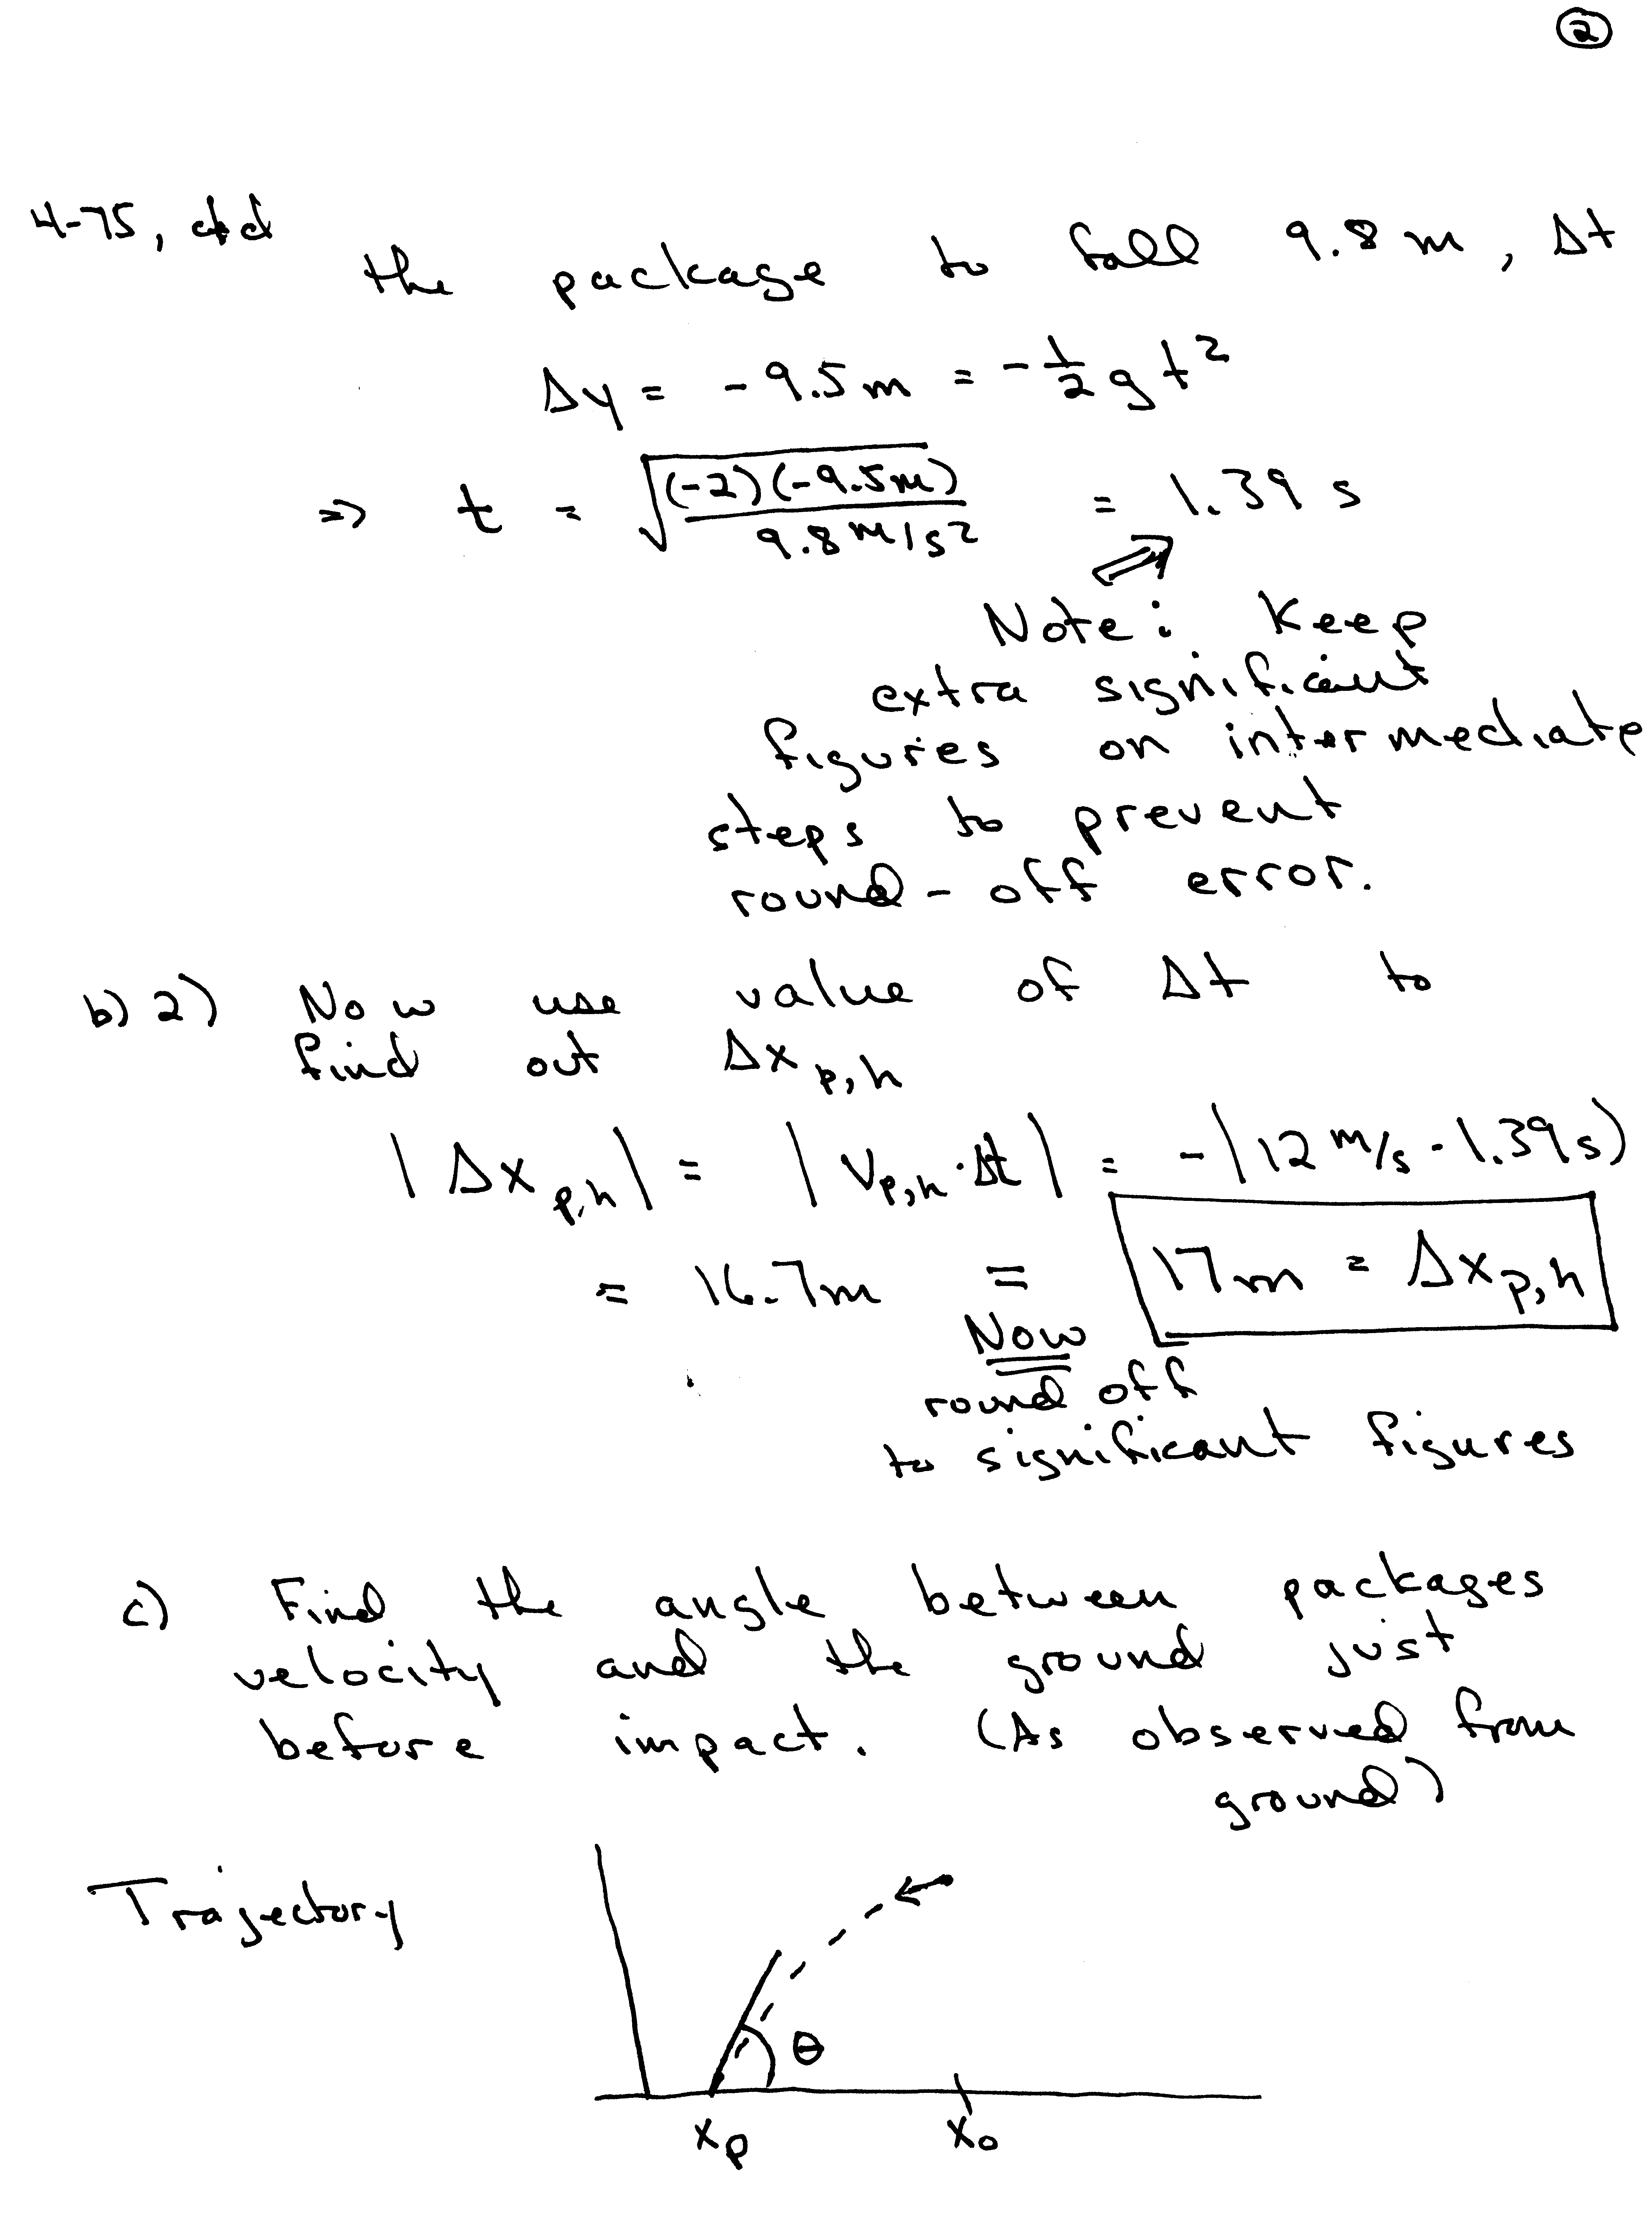 ②
4-75, ctd
the package to fall 9.8 m, Δt
Δy = -9.5 m = -½ g t²
⇒ t = √((-2)(-9.5m) / 9.8 m/s²) = 1.39 s
Note: Keep
extra significant
figures on intermediate
steps to prevent
round-off error.
b) 2) Now use value of Δt to
find out Δx p,h
|Δx p,h| = |V p,h · Δt| = -|12 m/s · 1.39 s)
= 16.7m = 17m = Δx p,h
Now
round off
to significant figures
c) Find the angle between packages
velocity and the ground just
before impact. (As observed from
ground)
Trajectory
θ
x p x₀